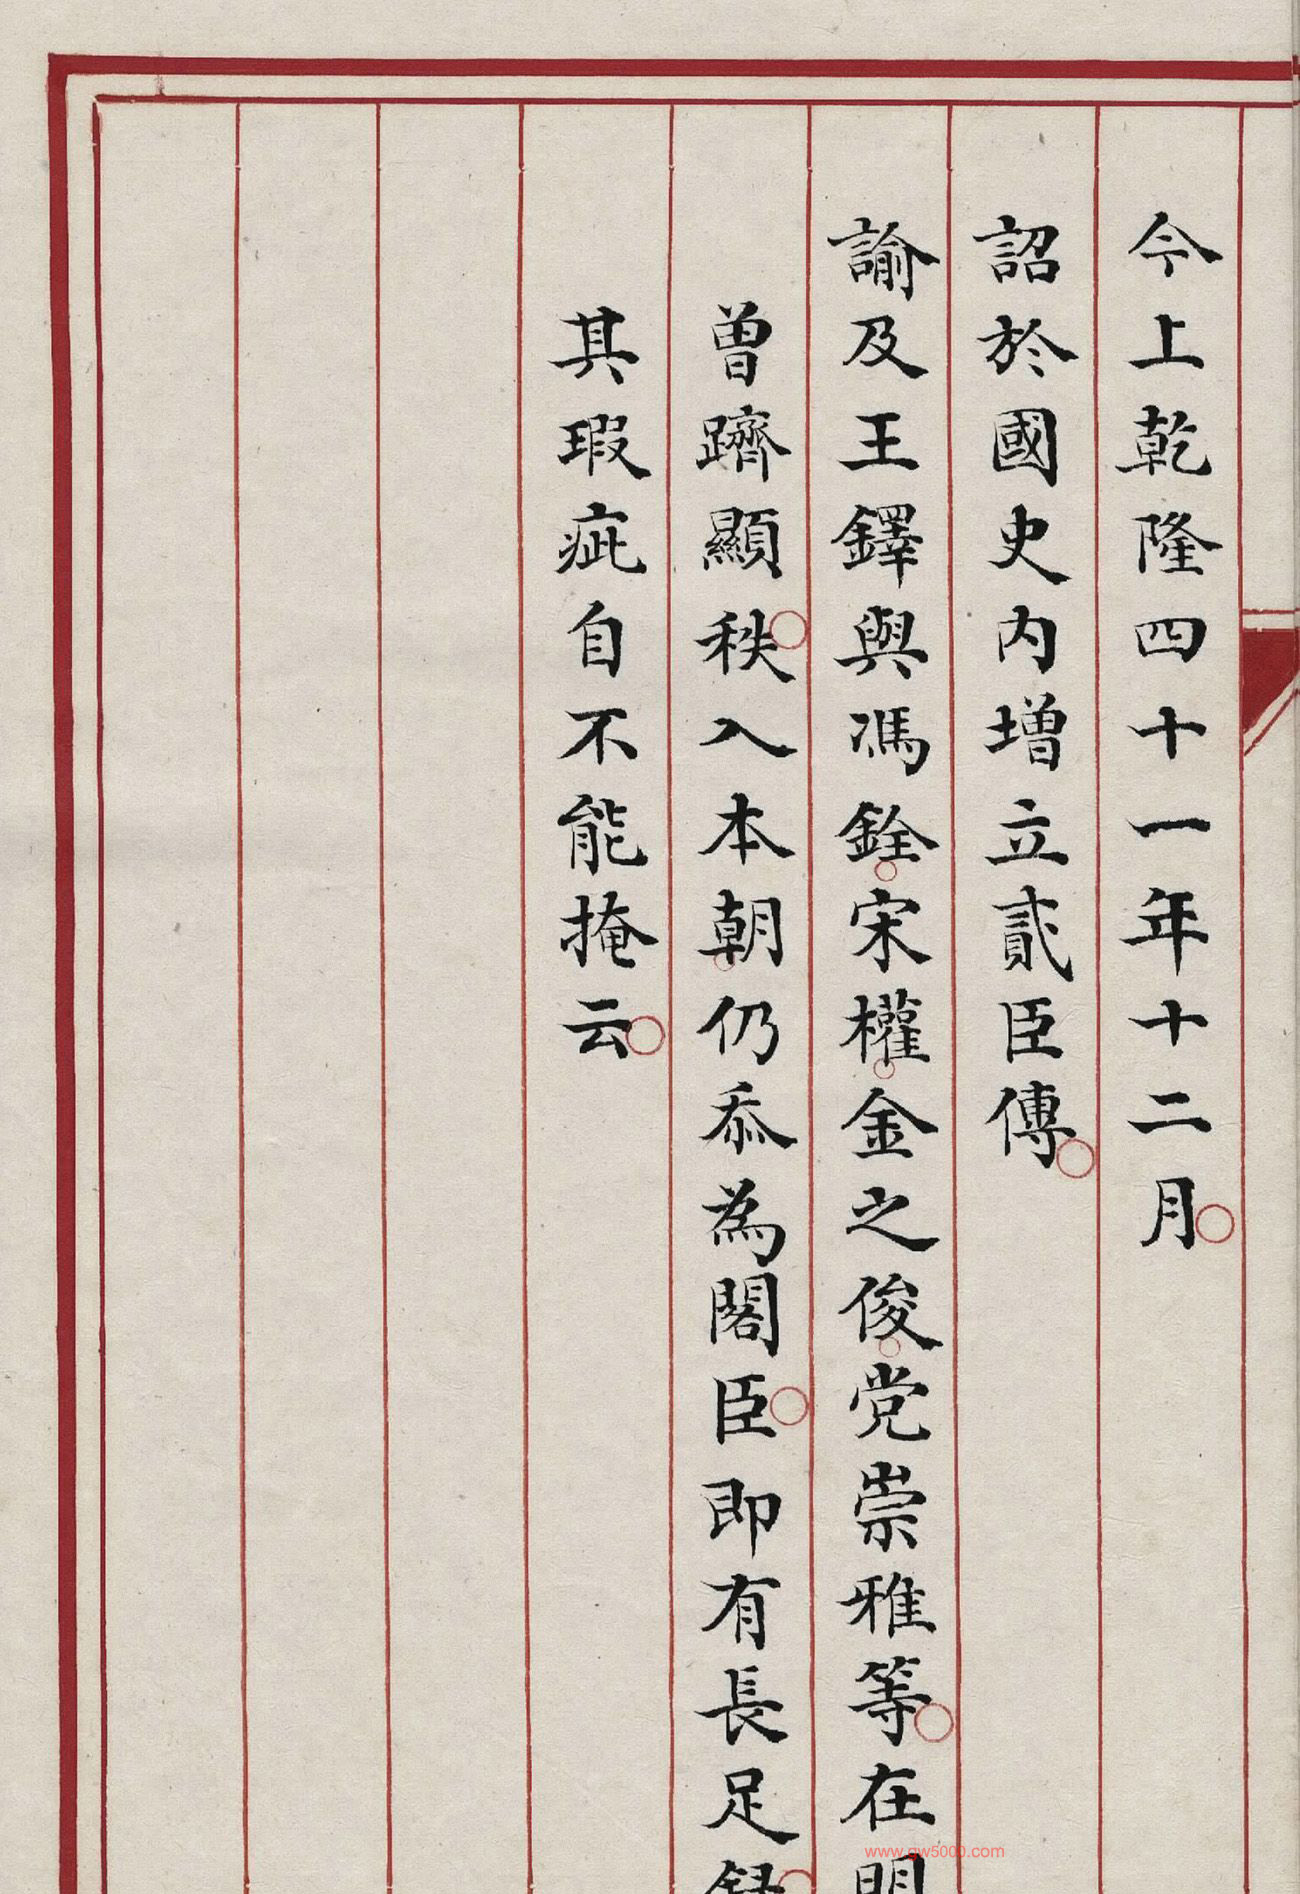 今上乾隆四十一年十二月
詔於國史內增立貳臣傳
諭及王鐸與馮銓宋權金之俊党崇雅等在明
曾躋顯秩入本朝仍忝為閣臣即有長足録
其瑕疵自不能掩云
www.gw5000.com